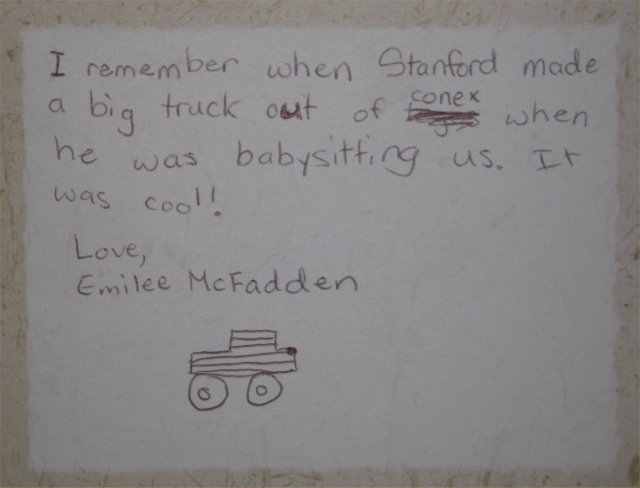 I remember when Stanford made
a big truck out of conex when
he was babysitting us. It
was cool!
Love,
Emilee McFadden